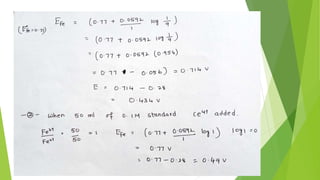 (E°= 0.77) E_Fe = (0.77 + 0.0592/1 log 1/9)
= (0.77 + 0.0592 log 1/9)
= (0.77 + 0.0592 (0.954)
= 0.77 - 0.056) = 0.714 V
E = 0.714 - 0.28
= 0.434 V
-②- when 50 ml of 0.1M standard Ce4+ added.
Fe3+/Fe2+ = 50/50 = 1 E_Fe = (0.77 + 0.0592/1 log 1) log 1 = 0
= 0.77 V
= 0.77 - 0.28 = 0.49 V